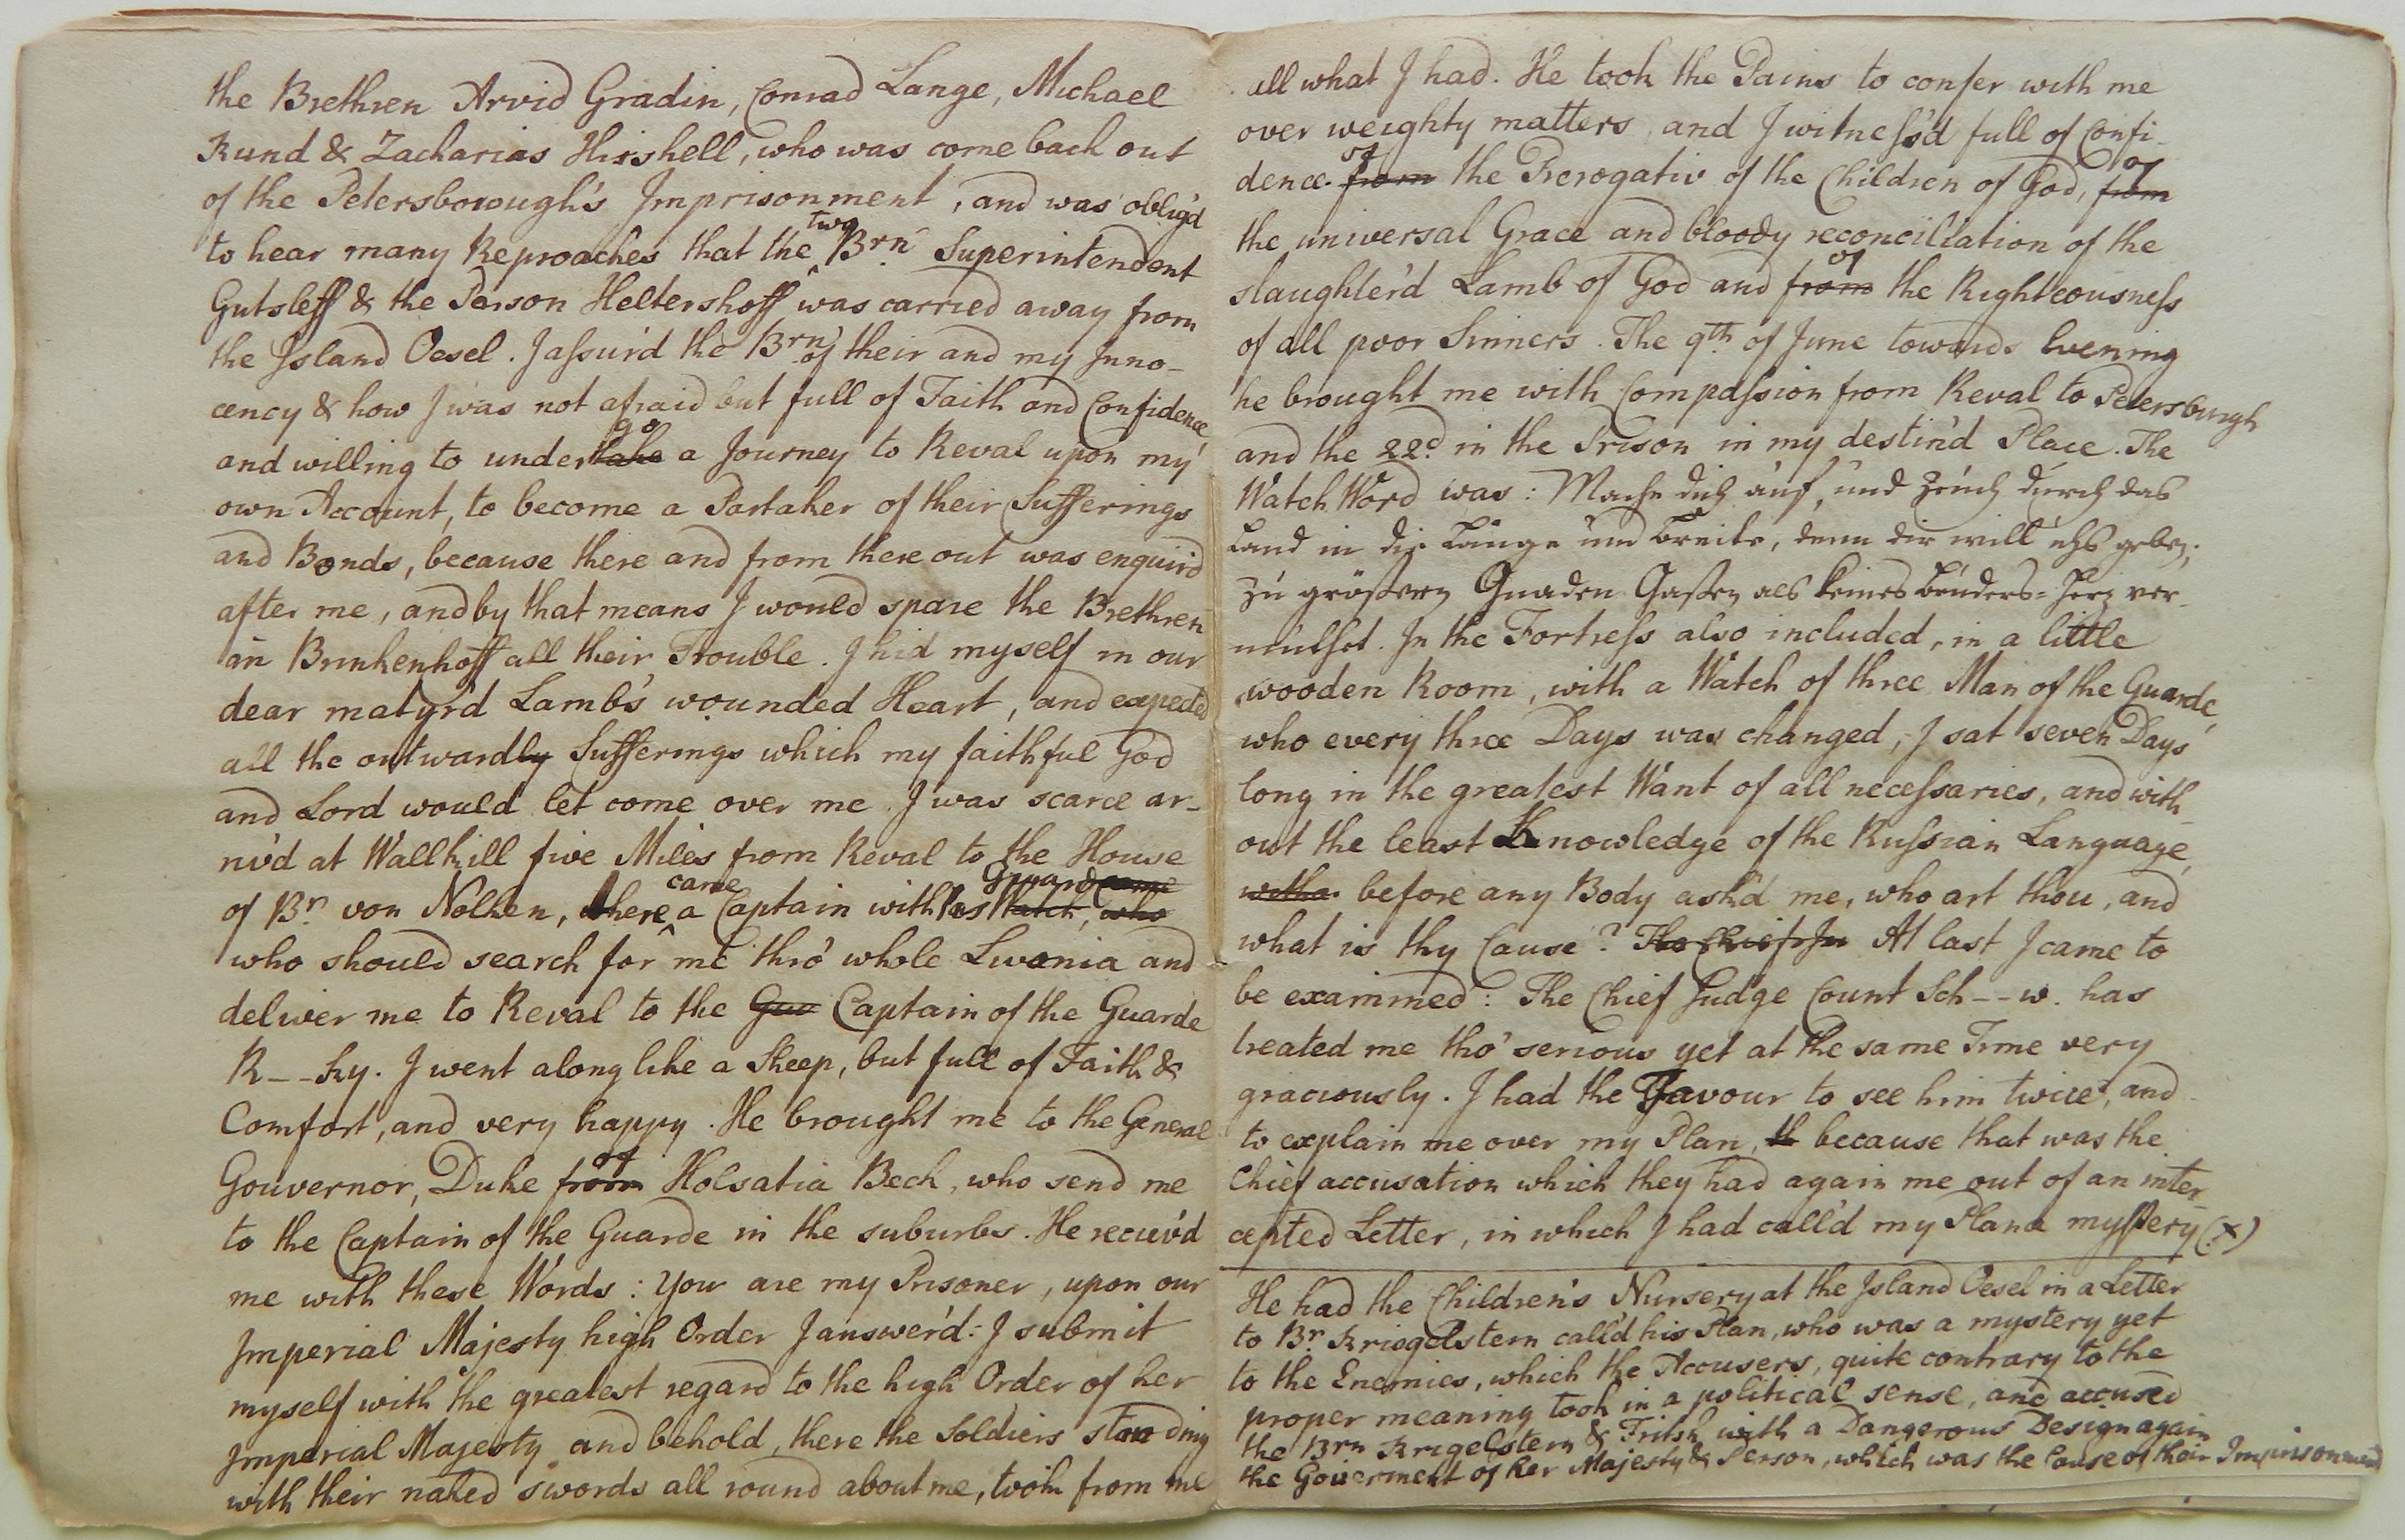 the Brethren Arvid Gradin, Conrad Lange, Michael
Kund & Zacharias Hirshell, who was come back out
of the Petersborough's Imprisonment, and was oblig'd
to hear many Reproaches that the two Brn Superintendent
Gutsleff & the Person Heltershoff was carried away from
the Island Oesel. I assur'd the Brn of their and my Inno-
cency & how I was not afraid but full of Faith and Confidence,
and willing to undertake go a Journey to Reval upon my
own Account, to become a Partaker of their Sufferings
and Bonds, because there and from there out was enquir'd
after me, and by that means I would spare the Brethren
in Brinkenhoff all their Trouble. I hid myself in our
dear matyr'd Lamb's wounded Heart, and expected
all the outwardly Sufferings which my faithful God
and Lord would let come over me. I was scarce ar-
riv'd at Wallkill five Miles from Reval to the House
of Brn von Nolken, there came a Captain with his Watch Guard came, who
who should search for me thro' whole Livonia and
deliver me to Reval to the Guv Captain of the Guarde
R--sky. I went along like a Sheep, but full of Faith &
Comfort, and very happy. He brought me to the General
Gouvernor, Duke from of Holsatia Beck, who send me
to the Captain of the Guarde in the suburbs. He reciev'd
me with these Words: You are my Prisoner, upon our
Imperial Majesty high Order I answer'd: I submit
myself with the greatest regard to the high Order of her
Imperial Majesty and behold, there the Soldiers standing
with their naked swords all round about me, took from me
all what I had. He took the Pains to confer with me
over weighty matters and I witness'd full of Confi-
dence from of the Prerogativ of the Children of God, from of
the universal Grace and bloody reconciliation of the
slaughter'd Lamb of God and from of the Righteousness
of all poor Sinners. The 9th of June towards Evening
he brought me with Compassion from Reval to Petersburgh
and the 22d in the Prison in my destin'd Place. The
Watch Word was: Mache dich auf, und zeuch durch das
Land in die Länge und Breite, denn dir will ichs geben;
zu größern Gnaden Gaßen als keines Bruders-Herz ver-
muthet. In the Fortress also included, in a little
wooden Room, with a Watch of three Man of the Guarde,
who every three Days was changed, I sat seven Days
long in the greatest Want of all necessaries, and with-
out the least Knowledge of the Russian Language,
before any Body ask'd me, who art thou, and
what is thy Cause? The Chief Ju At last I came to
be examined: The Chief Judge Count Sch--w. has
treated me tho' serious yet at the same Time very
graciously. I had the Favour to see him twice, and
to explain me over my Plan, th because that was the
Chief accusation which they had again me out of an inter-
cepted Letter, in which I had call'd my Plan a mystery (x)
He had the Children's Nursery at the Island Oesel in a Letter
to Br. Kriegelstern call'd his Plan, who was a mystery yet
to the Enemies, which the Accusers, quite contrary to the
proper meaning took in a political sense, and accused
the Brn Krigelstern & Fritsh with a Dangerous Design again
the Goverment of her Majesty & Person, which was the Cause of their Imprisonment